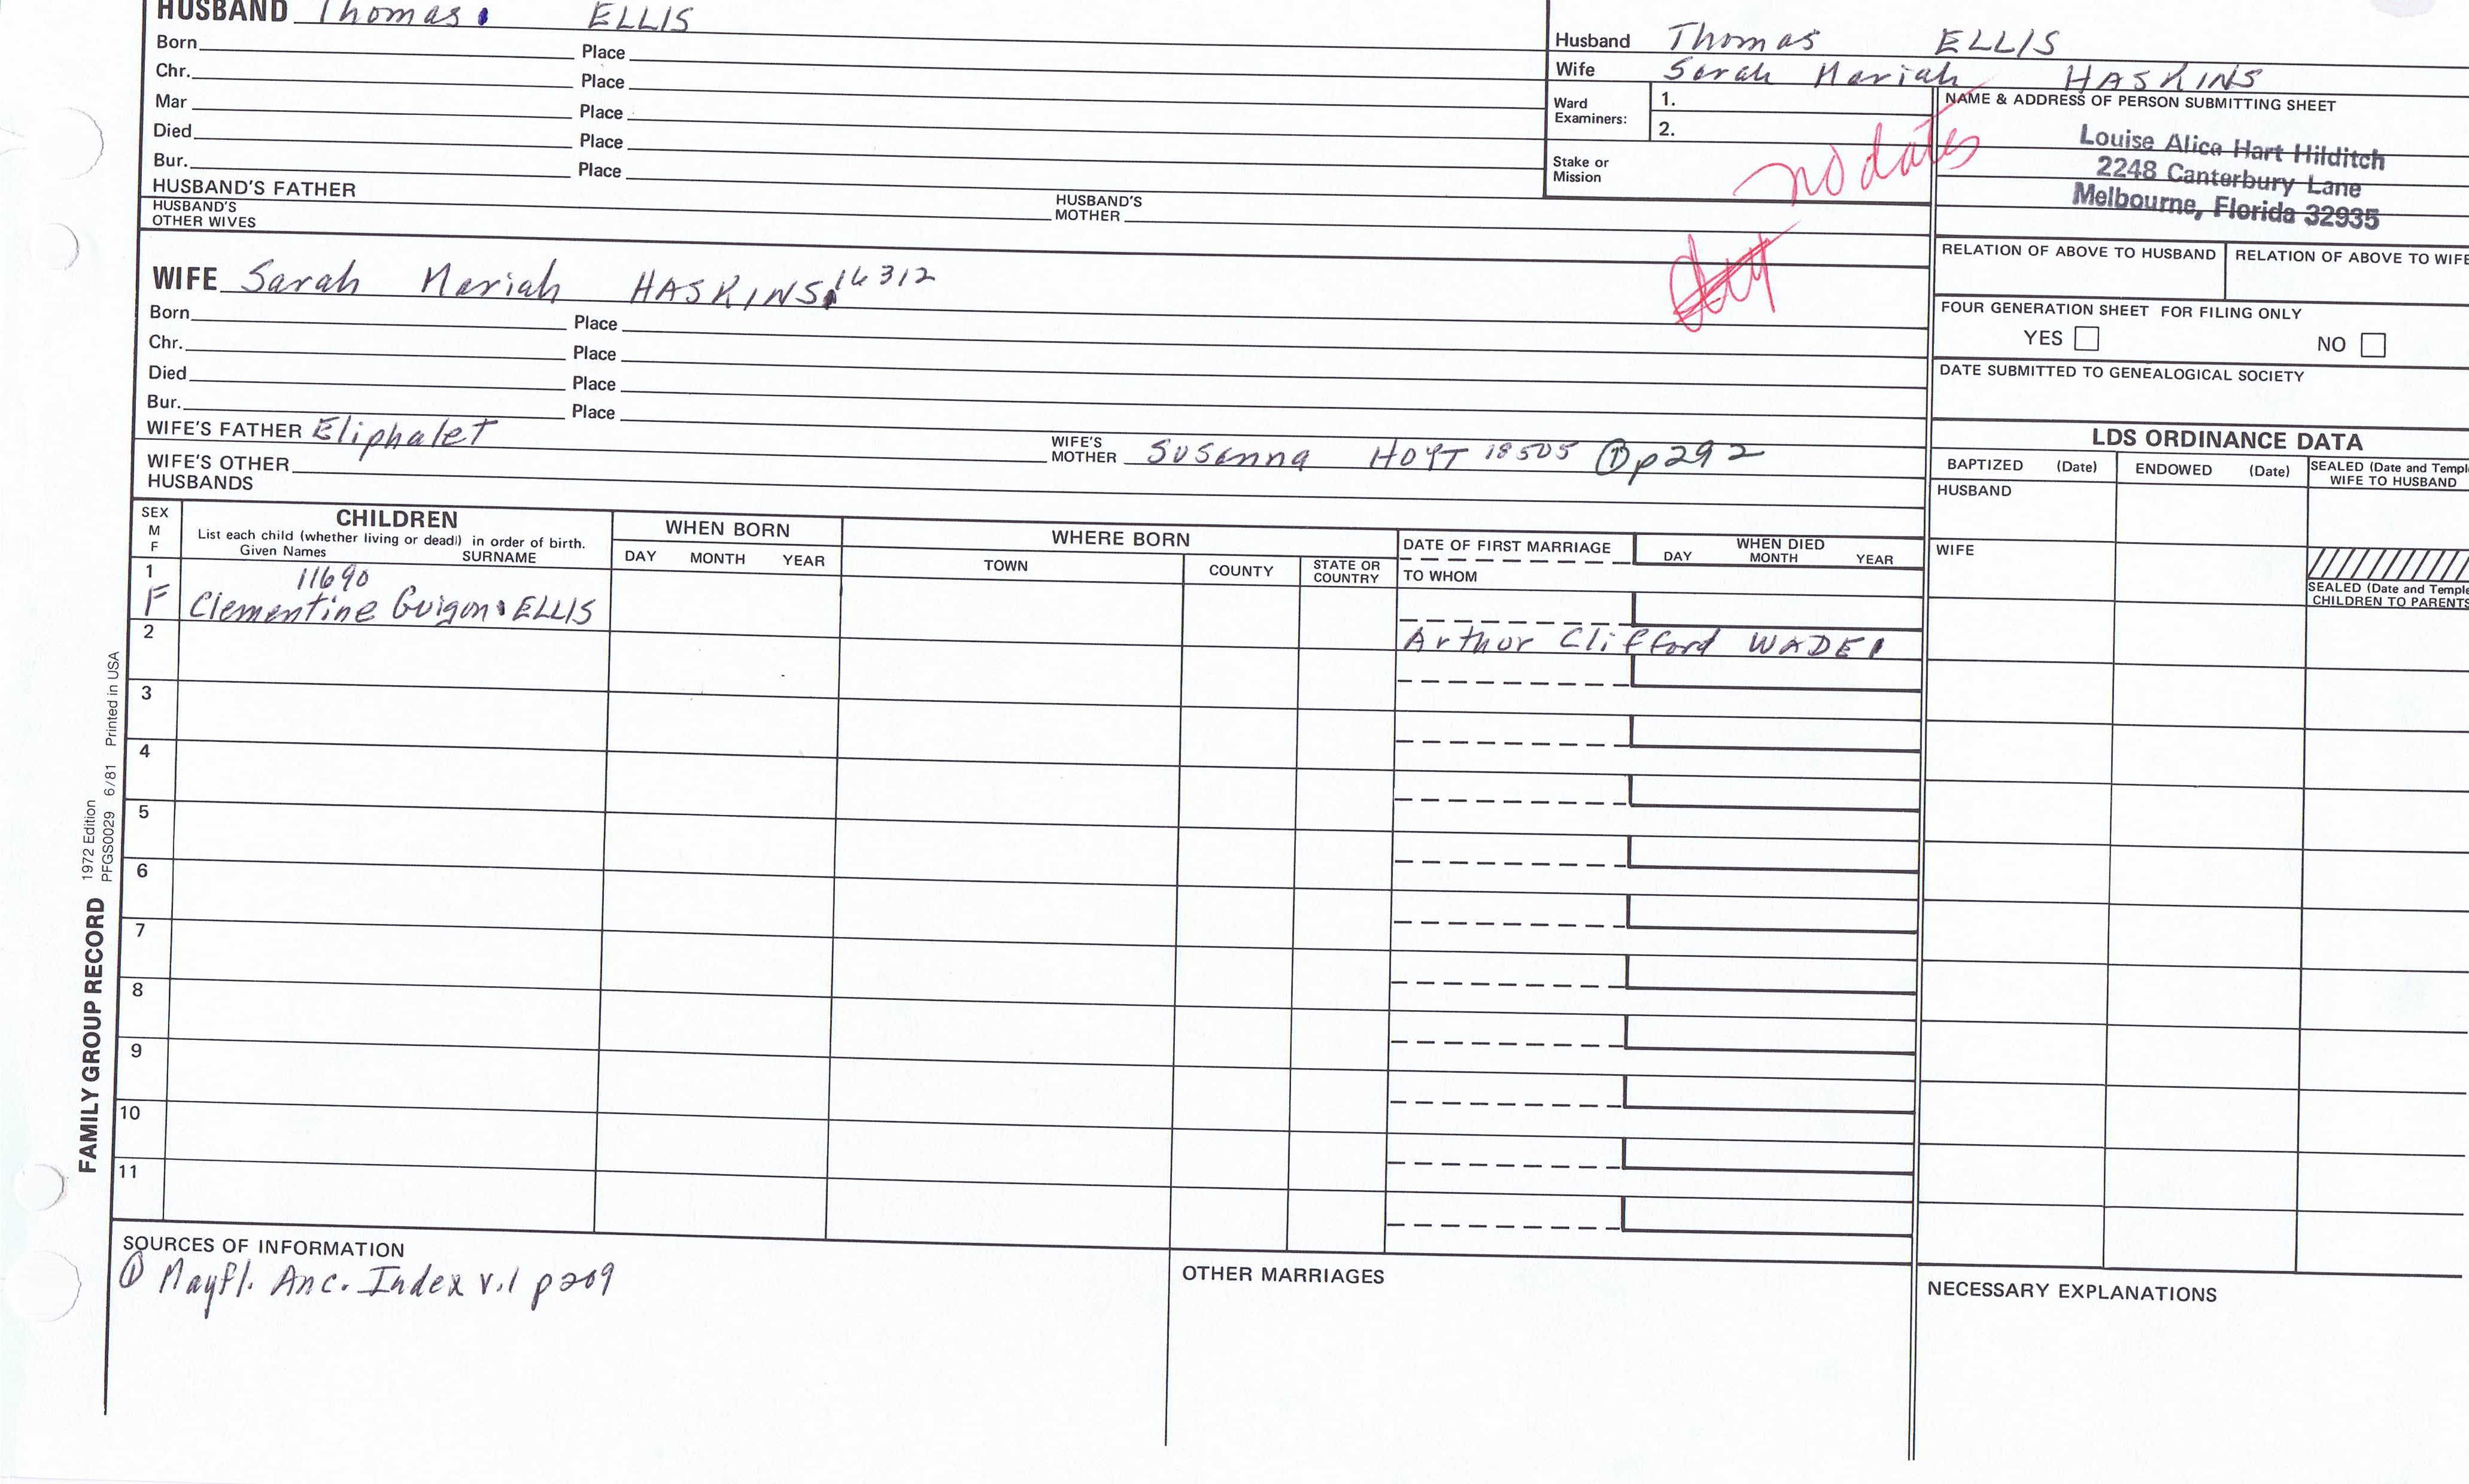 HUSBAND Thomas ELLIS
Born Place
Chr. Place
Mar Place
Died Place
Bur. Place
HUSBAND'S FATHER HUSBAND'S MOTHER
HUSBAND'S OTHER WIVES
Husband Thomas ELLIS
Wife Sarah Mariah HASKINS
Ward Examiners: 1.
2.
Stake or Mission
no dates
NAME & ADDRESS OF PERSON SUBMITTING SHEET
Louise Alice Hart Hilditch
2248 Canterbury Lane
Melbourne, Florida 32935
RELATION OF ABOVE TO HUSBAND RELATION OF ABOVE TO WIFE
FOUR GENERATION SHEET FOR FILING ONLY
YES NO
DATE SUBMITTED TO GENEALOGICAL SOCIETY
WIFE Sarah Mariah HASKINS 16312
Born Place
Chr. Place
Died Place
Bur. Place
WIFE'S FATHER Eliphalet WIFE'S MOTHER Susanna HOYT 18505 ① p292
WIFE'S OTHER HUSBANDS
LDS ORDINANCE DATA
BAPTIZED (Date) ENDOWED (Date) SEALED (Date and Templ
WIFE TO HUSBAND
HUSBAND
WIFE
SEALED (Date and Temple
CHILDREN TO PARENTS
SEX M F
CHILDREN
List each child (whether living or dead) in order of birth.
Given Names SURNAME
WHEN BORN
DAY MONTH YEAR
WHERE BORN
TOWN COUNTY STATE OR COUNTRY
DATE OF FIRST MARRIAGE
TO WHOM
WHEN DIED
DAY MONTH YEAR
1 11690
F Clementine Guigon ELLIS
Arthur Clifford WADE
2
3
4
5
6
7
8
9
10
11
FAMILY GROUP RECORD 1972 Edition
PFGS0029 6/81 Printed in USA
SOURCES OF INFORMATION
① Mayfl. Anc. Index v.1 p209
OTHER MARRIAGES
NECESSARY EXPLANATIONS